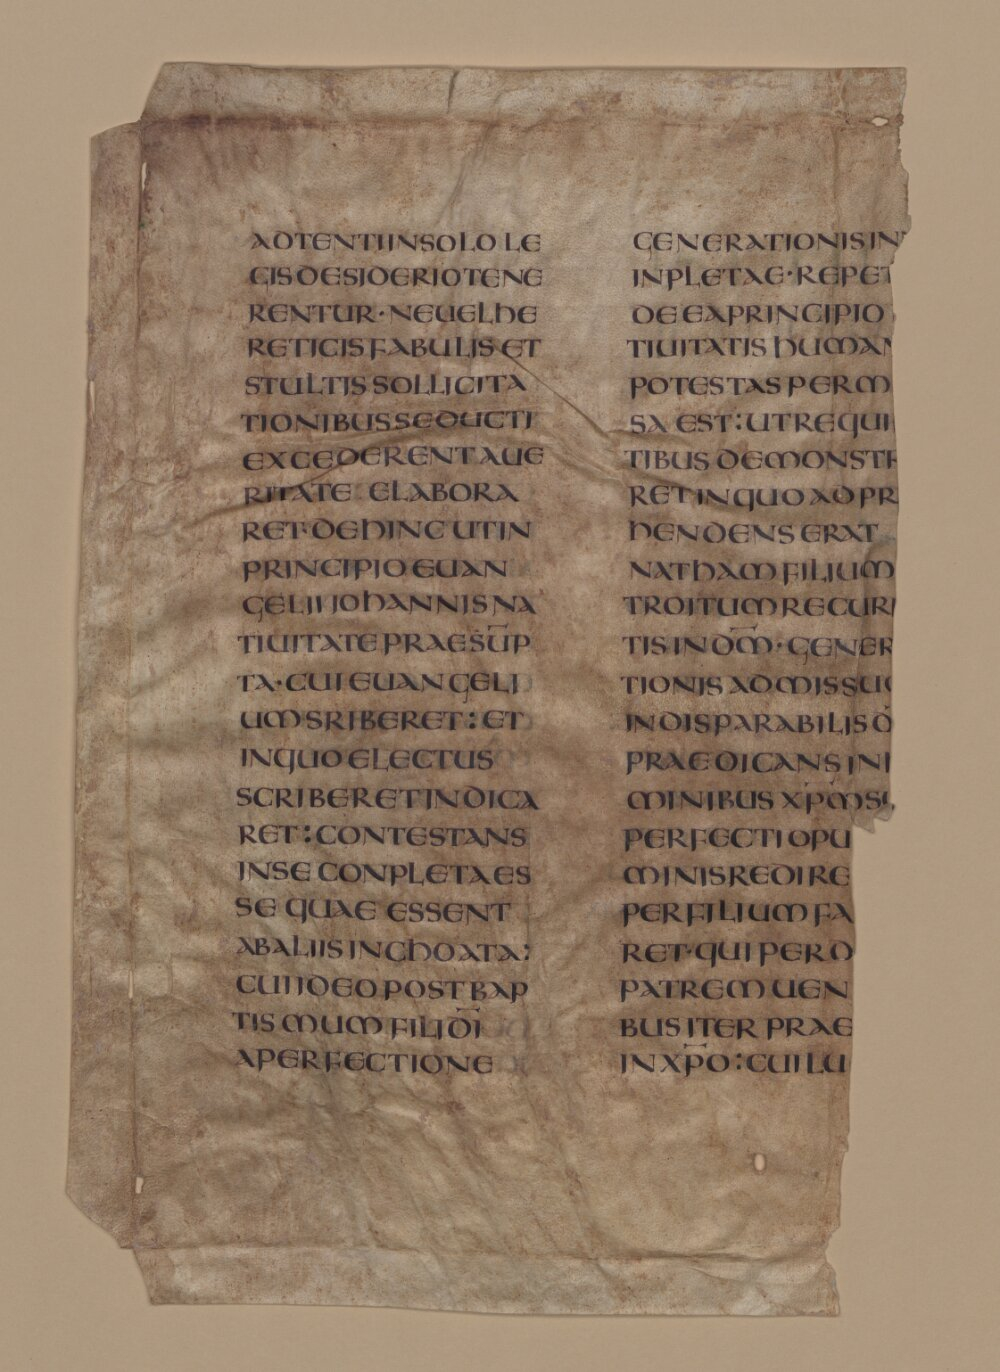 ADTENTIINSOLO LE
GISDESIDERIOTENE
RENTUR·NEUELHE
RETICISFABULIS ET
STULTIS SOLLICITA
TIONIBUSSEDUCTI
EXCEDERENTAUE
RITATE ELABORA
RET·DEHINC UTIN
PRINCIPIO EUAN
GELIIIOHANNIS NA
TIUITATE PRAESŪP
TA·CUI EUANGELI
UMSRIBERET:ET
INQUO ELECTUS
SCRIBERETINDICA
RET:CONTESTANS
INSE CONPLETAES
SE QUAE ESSENT
ABALIISINCHOATA:
CUIIDEOPOSTBAP
TISMUM FILIDĪ
APERFECTIONE
GENERATIONIS IN
INPLETAE·REPET
DE EAPRINCIPIO
TIUITATIS HUMAN
POTESTAS PERM
SA EST:UTREQUI
TIBUS DEMONSTR
RET INQUO ADPR
HENDENS ERAT
NATHAM FILIUM
TROITUM RECURR
TIS IN DM̄·GENER
TIONIS ADMISSU
INDISPARABILIS D
PRAEDICANS INI
MINIBUS XP̄M̄SU
PERFECTI OPU
MINISREDIRE
PERFILIUM FA
RET·QUI PER D
PATREM UEN
BUS ITER PRAE
INXP̄O:CUI LU